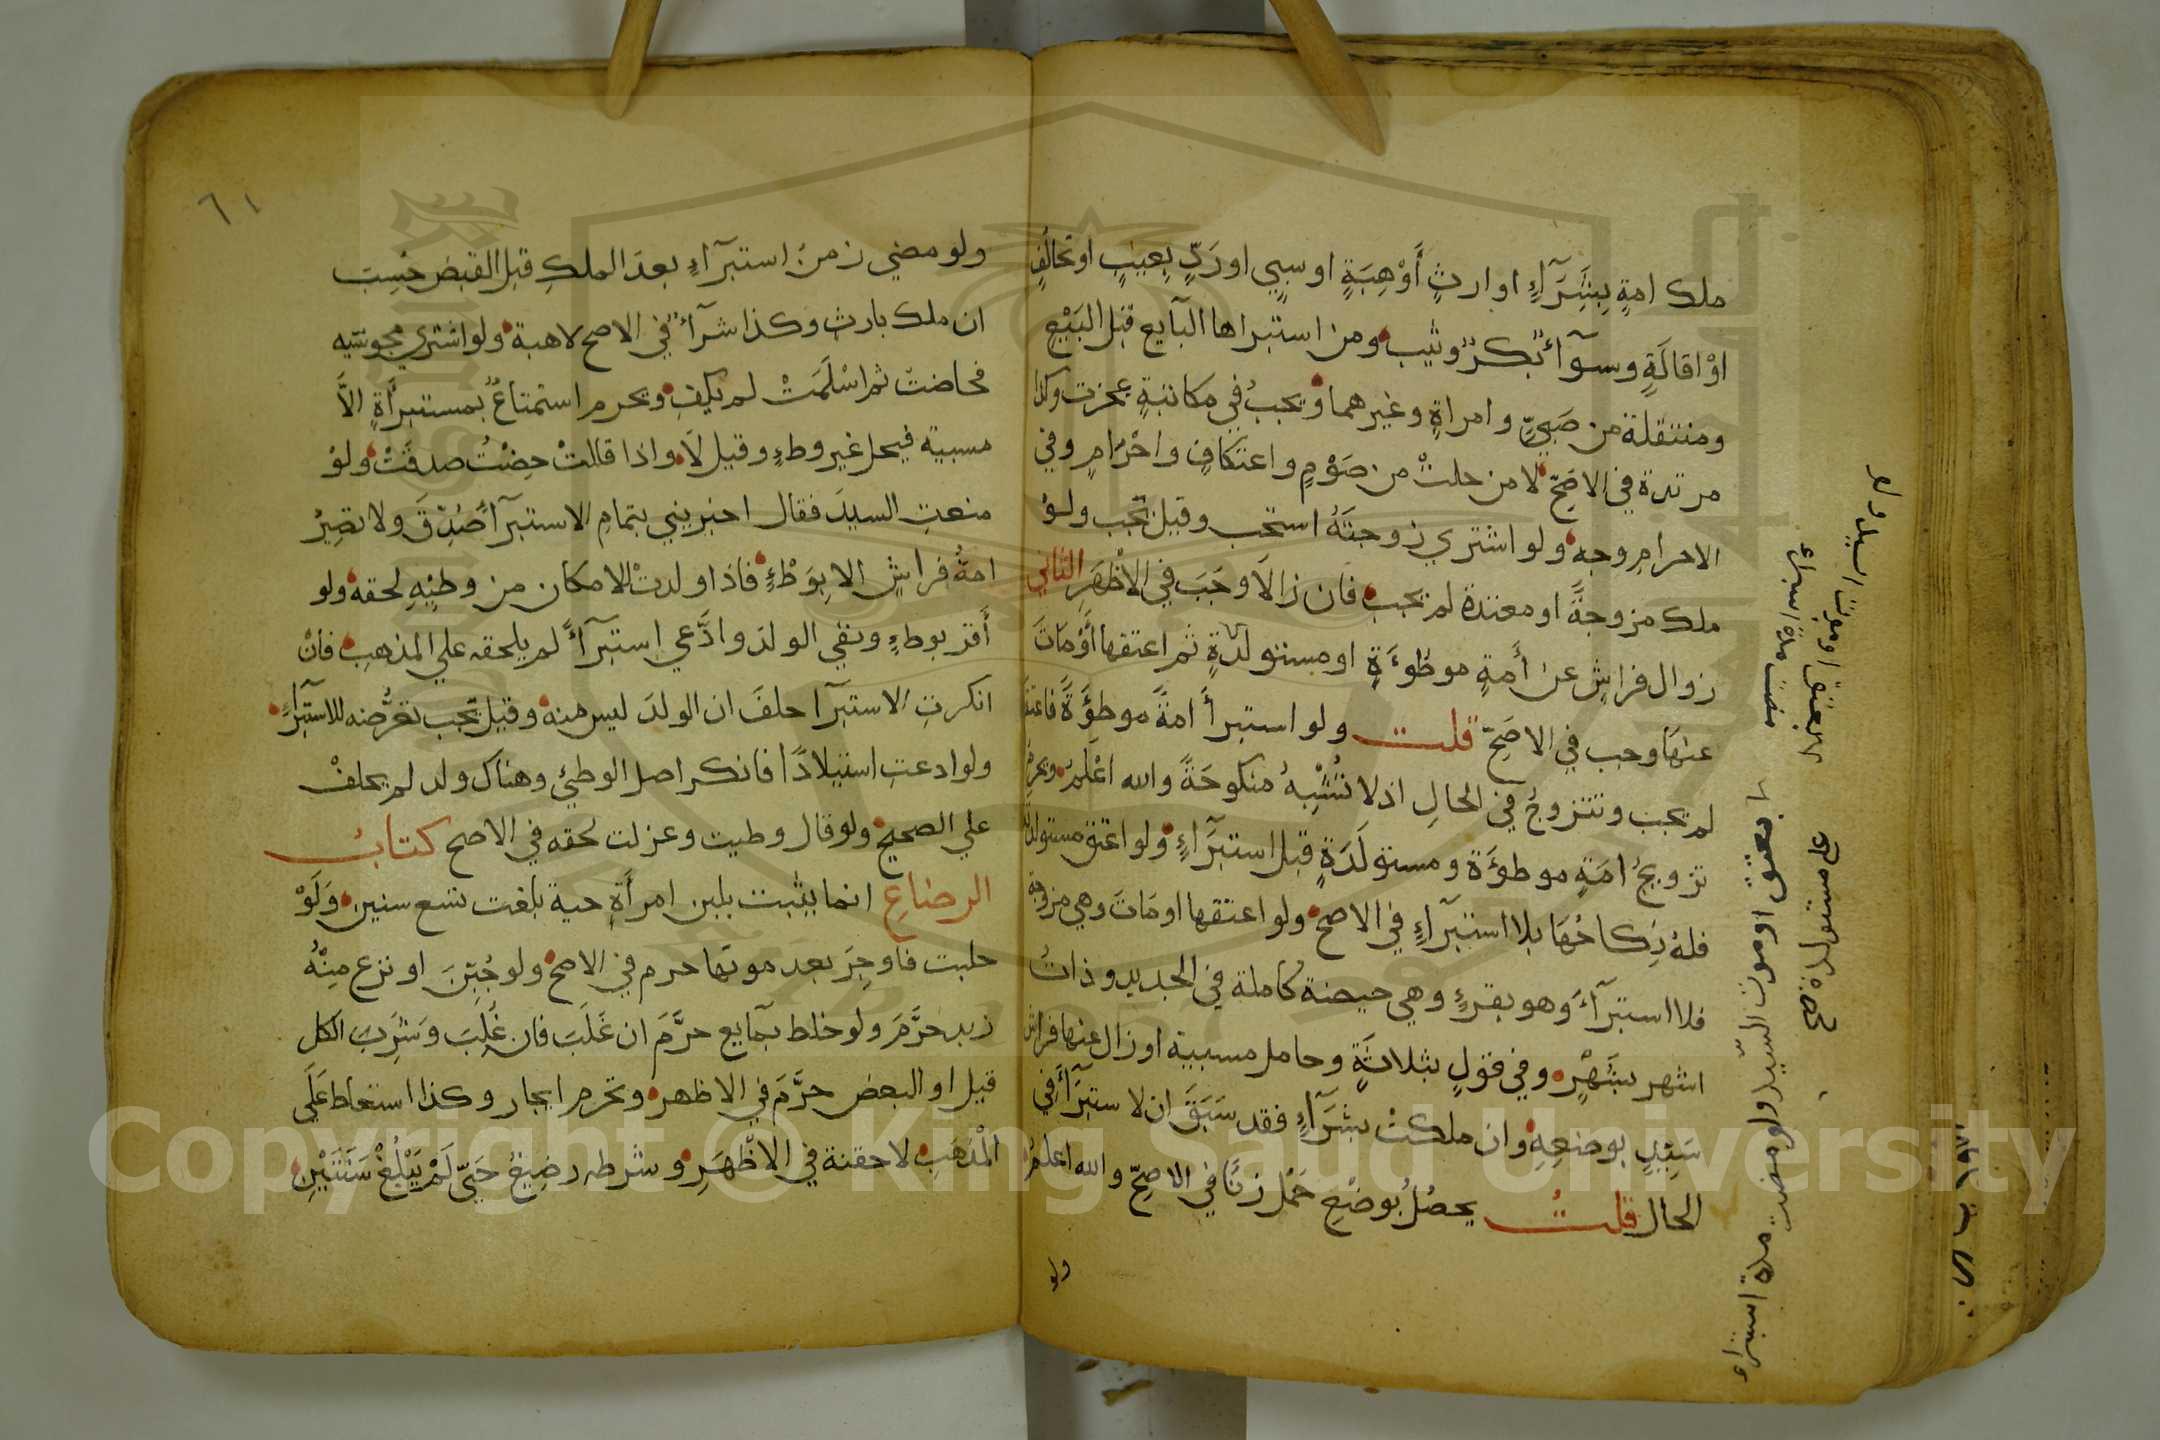 ملك امةٍ بِشِرَآءٍ او ارثٍ أَوْ هِبَةٍ او سبيٍ او رَدٍّ بِعيبٍ او تحالُفٍ
اوْ اقالَةٍ وسوآءٌ بكرٌ وثيب ومن استبراها البآيع قبل البَيْعِ
ومنتقلة من صَبيٍّ وامراةٍ وغيرهما ويجبُ في مكاتبةٍ عجزت وكذا
مرتدة في الاصَحِّ لا من حلتْ من صَوْمٍ واعتكافٍ واحْرَامٍ وفي
الاحرامِ وجه ولو اشتري زوجتَهُ استحب وقيل تجب ولوْ
ملك مزوجةً او معتدة لم تجب فان زالاَ وجَبَ في الاظْهَرِ الثاني
زوال فراشٍ عن أَمةٍ موطُوءَةٍ او مستولدةٍ ثم اعتقها أوْ مَاتَ
عنهَا وجب في الاصَحِّ قلت ولو استبرأ امةً موطوَّةً فاعتقها
لم تجب وتتزوجُ في الحالِ اذ لا تُشْبِهُ منكوحَةً والله اعْلَمُ ويحرمُ
تزويجُ امَةٍ موطوءَة ومستولَدَةٍ قبل استبرَآءٍ ولو اعتق مستولدته
فلهُ نِكاحُهَا بلا استبرآءٍ في الاصح ولو اعتقها او مَاتَ وهي مزوجة
فلا استبرآءَ وهو بقرءٍ وهي حيضة كاملة في الجديد وذاتُ
اشهر بشَهْرٍ وفي قولٍ بثلاثَةٍ وحامل مسبية او زال عنها فراش
سَيِّدٍ بوضعِهِ وان ملكتْ بشرَآءٍ فقد سَبَقَ ان لا ستبرَأ في
الحال قلتُ يحصُلُ بوضْعِ حَمْل زنًا في الاصَحِّ والله اعلمُ
ولو
السيد ولو
بالعتق او موت
مضت مدة استبراء
على مستولدة صح
بعتق او موت السّيد ولو مضت مدة استبراء
٦١
ولو مضي زمنُ استبرآءٍ بعدَ الملكِ قبل القبض حُسِبَ
ان ملك بارث وكذا شرآءٌ في الاصح لا هبة ولو اشتري مجوسيه
فحاضتْ ثم اسْلَمَتْ لم يكفِ ويحرم استمتاعٌ بمستبرأةٍ الاَّ
مسبية فيحل غير وطءٍ وقيل لاَ واذا قالتْ حِضْتُ صدقَتْ ولوْ
منعتِ السيدَ فقال اخبرتني بتمامِ الاستبرآ صُدِّقَ ولا تصِيْرُ
امةٌ فراشٍ الا بِوَطْءٍ فاذا ولدتْ للامكان من وطيِهِ لحقه ولو
أَقر بوطءٍ ونفي الولدَ وادَّعي استبرَآءً لم يلحقه علي المذهبِ فانْ
انكرتِ الاستبرآ حلفَ ان الولدَ ليس منه وقيل يجب تعرُّضه للاستبرَآءِ
ولو ادعتِ استيلادًا فانكر اصل الوطئ وهناك ولد لم يحلفْ
علي الصحيح ولو قال وطيت وعزلت لحقه في الاصح كتابُ
الرضاعِ انما يثبت بلبن امرأةٍ حية بلغت تسع سنين وَلَوْ
حلبت فاوجِرَ بعد موتها حرم في الاصح ولو جُبِّنَ او نزع مِنْهُ
زبد حَرَّمَ ولو خلط بمآيع حرَّمَ ان غَلَبَ فان غُلِبَ وَشَرِبَ الكل
قيل او البعض حرَّمَ في الاظهر وتحرم ايجار وكذا استعاط عَلَي
الْمذهَبِ لا حقنة في الاظْهَرِ وشرطه رضِيعُ حَيّ لَمْ يَبْلُغْ سَنَتَيْنِ
Copyright © King Saud University